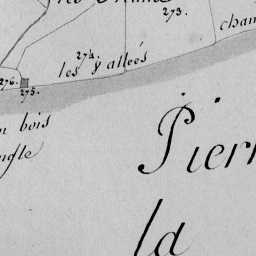 273.
cham
274.
les Vallées
276.
275.
bois
Pierr
la